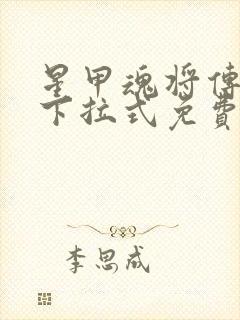 星甲魂将傳
下拉式免費
李思成